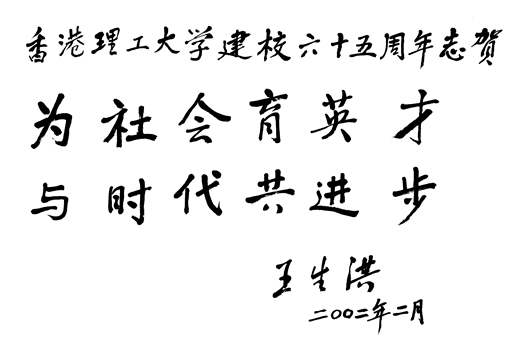 香港理工大学建校六十五周年志賀
为社会育英才
与时代共进步
王生洪
二〇〇二年二月